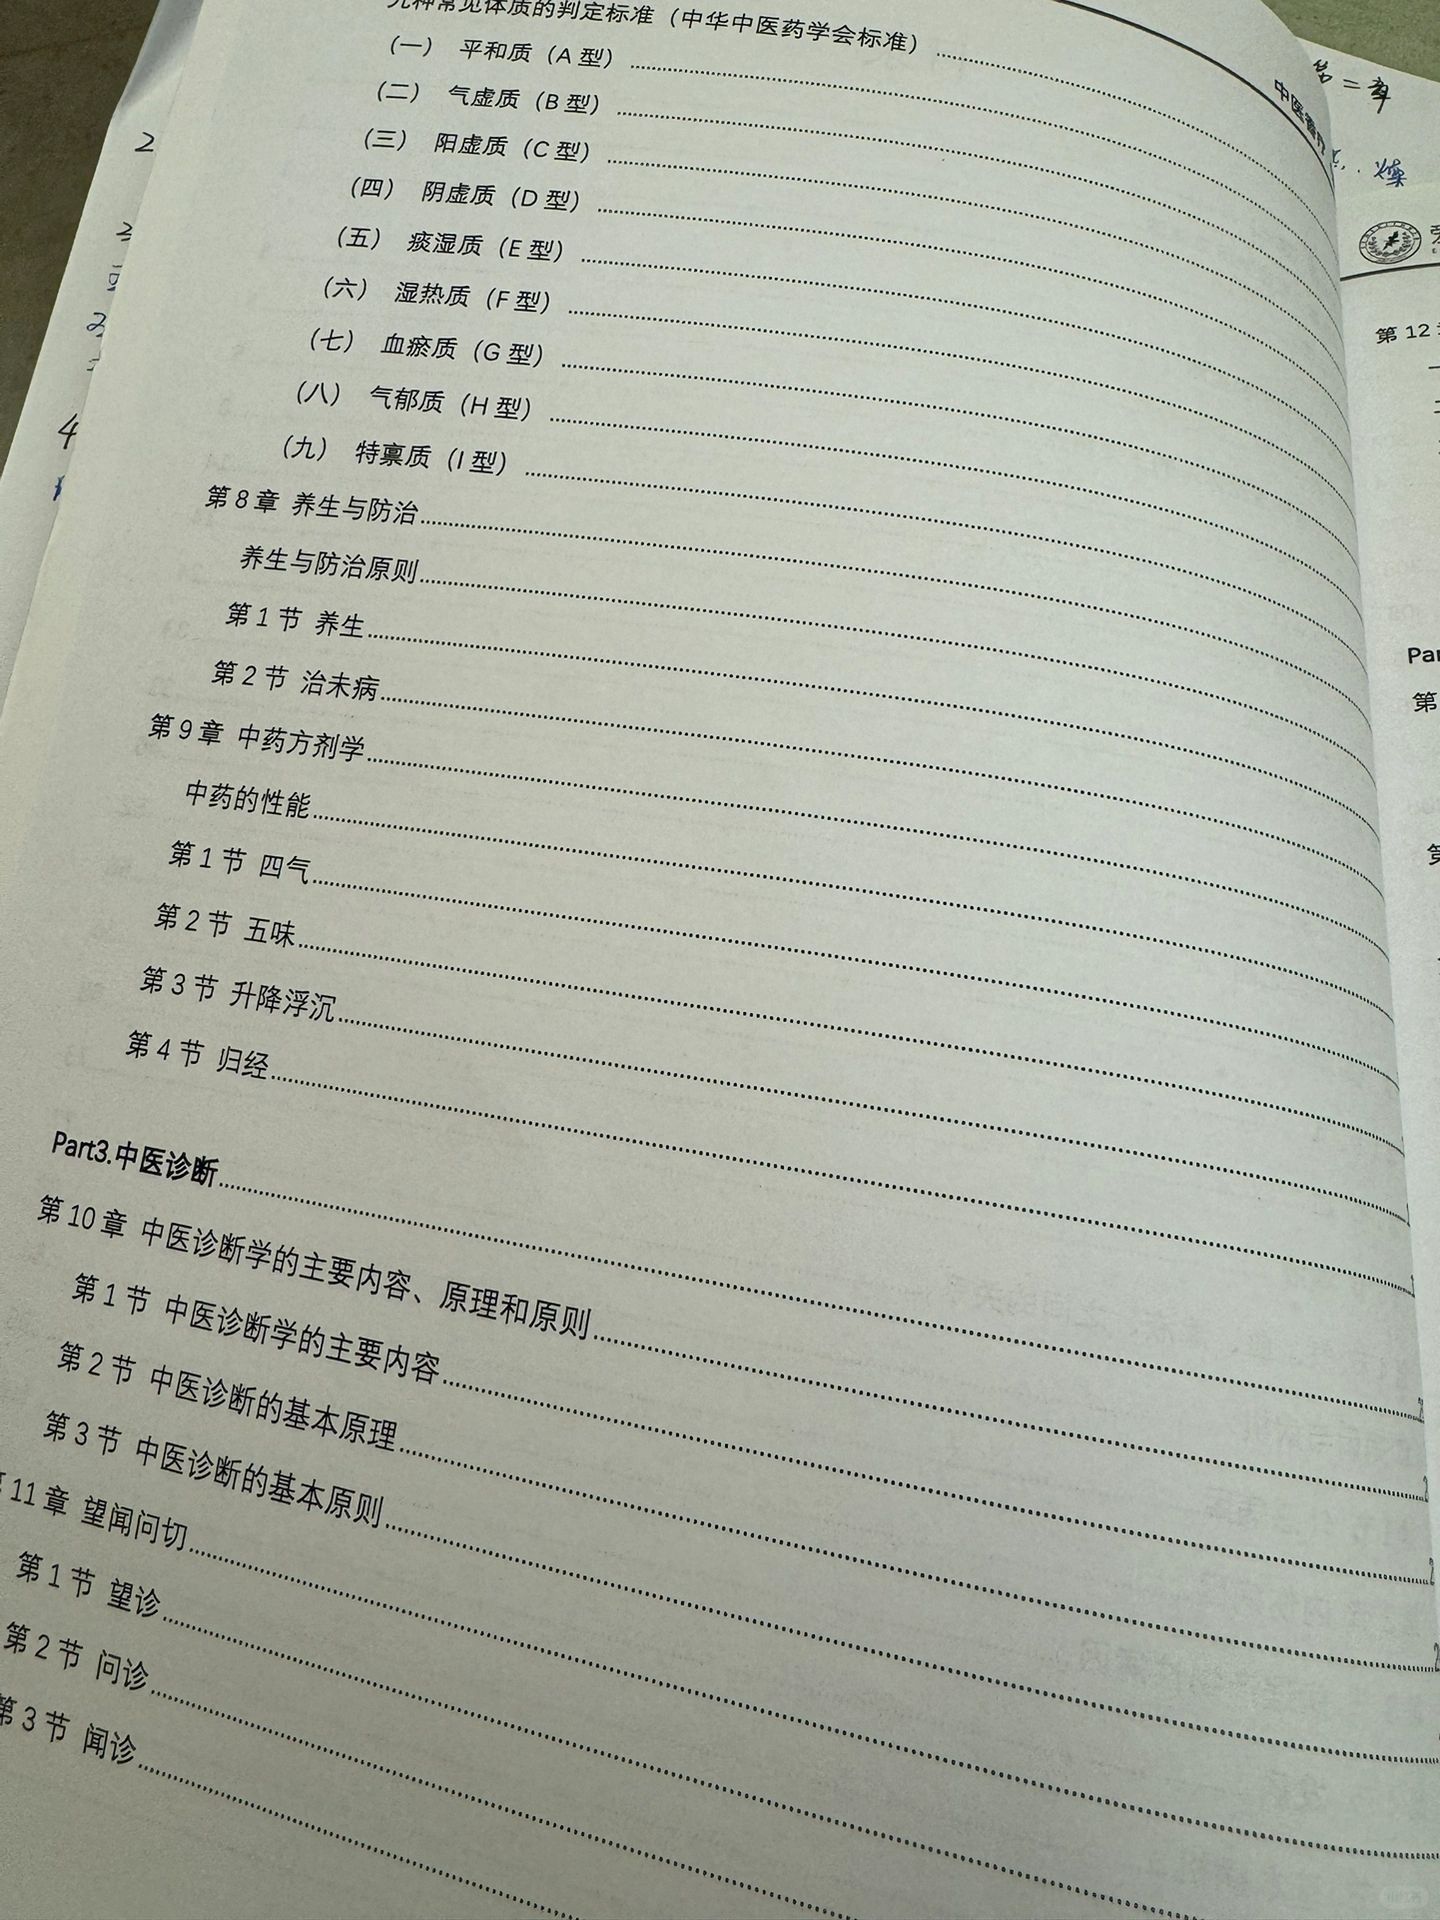 九种常见体质的判定标准（中华中医药学会标准）
（一） 平和质（A 型）
（二） 气虚质（B 型）
（三） 阳虚质（C 型）
（四） 阴虚质（D 型）
（五） 痰湿质（E 型）
（六） 湿热质（F 型）
（七） 血瘀质（G 型）
（八） 气郁质（H 型）
（九） 特禀质（I 型）
第 8 章 养生与防治
养生与防治原则
第 1 节 养生
第 2 节 治未病
第 9 章 中药方剂学
中药的性能
第 1 节 四气
第 2 节 五味
第 3 节 升降浮沉
第 4 节 归经
Part3.中医诊断
第 10 章 中医诊断学的主要内容、原理和原则
第 1 节 中医诊断学的主要内容
第 2 节 中医诊断的基本原理
第 3 节 中医诊断的基本原则
11 章 望闻问切
第 1 节 望诊
第 2 节 问诊
第 3 节 闻诊
中医
第二章
第 12
第
2
4